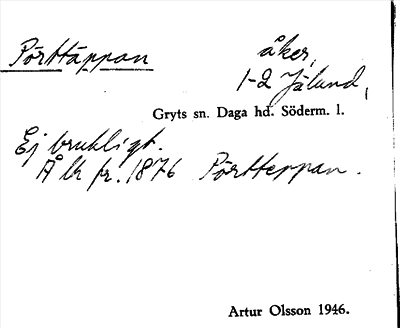 Pörttäppan åker,
1-2 Jälund,
Gryts sn. Daga hd. Söderm. l.
Ej brukligt.
Å lk fr. 1876 Pörtteppan.
Artur Olsson 1946.